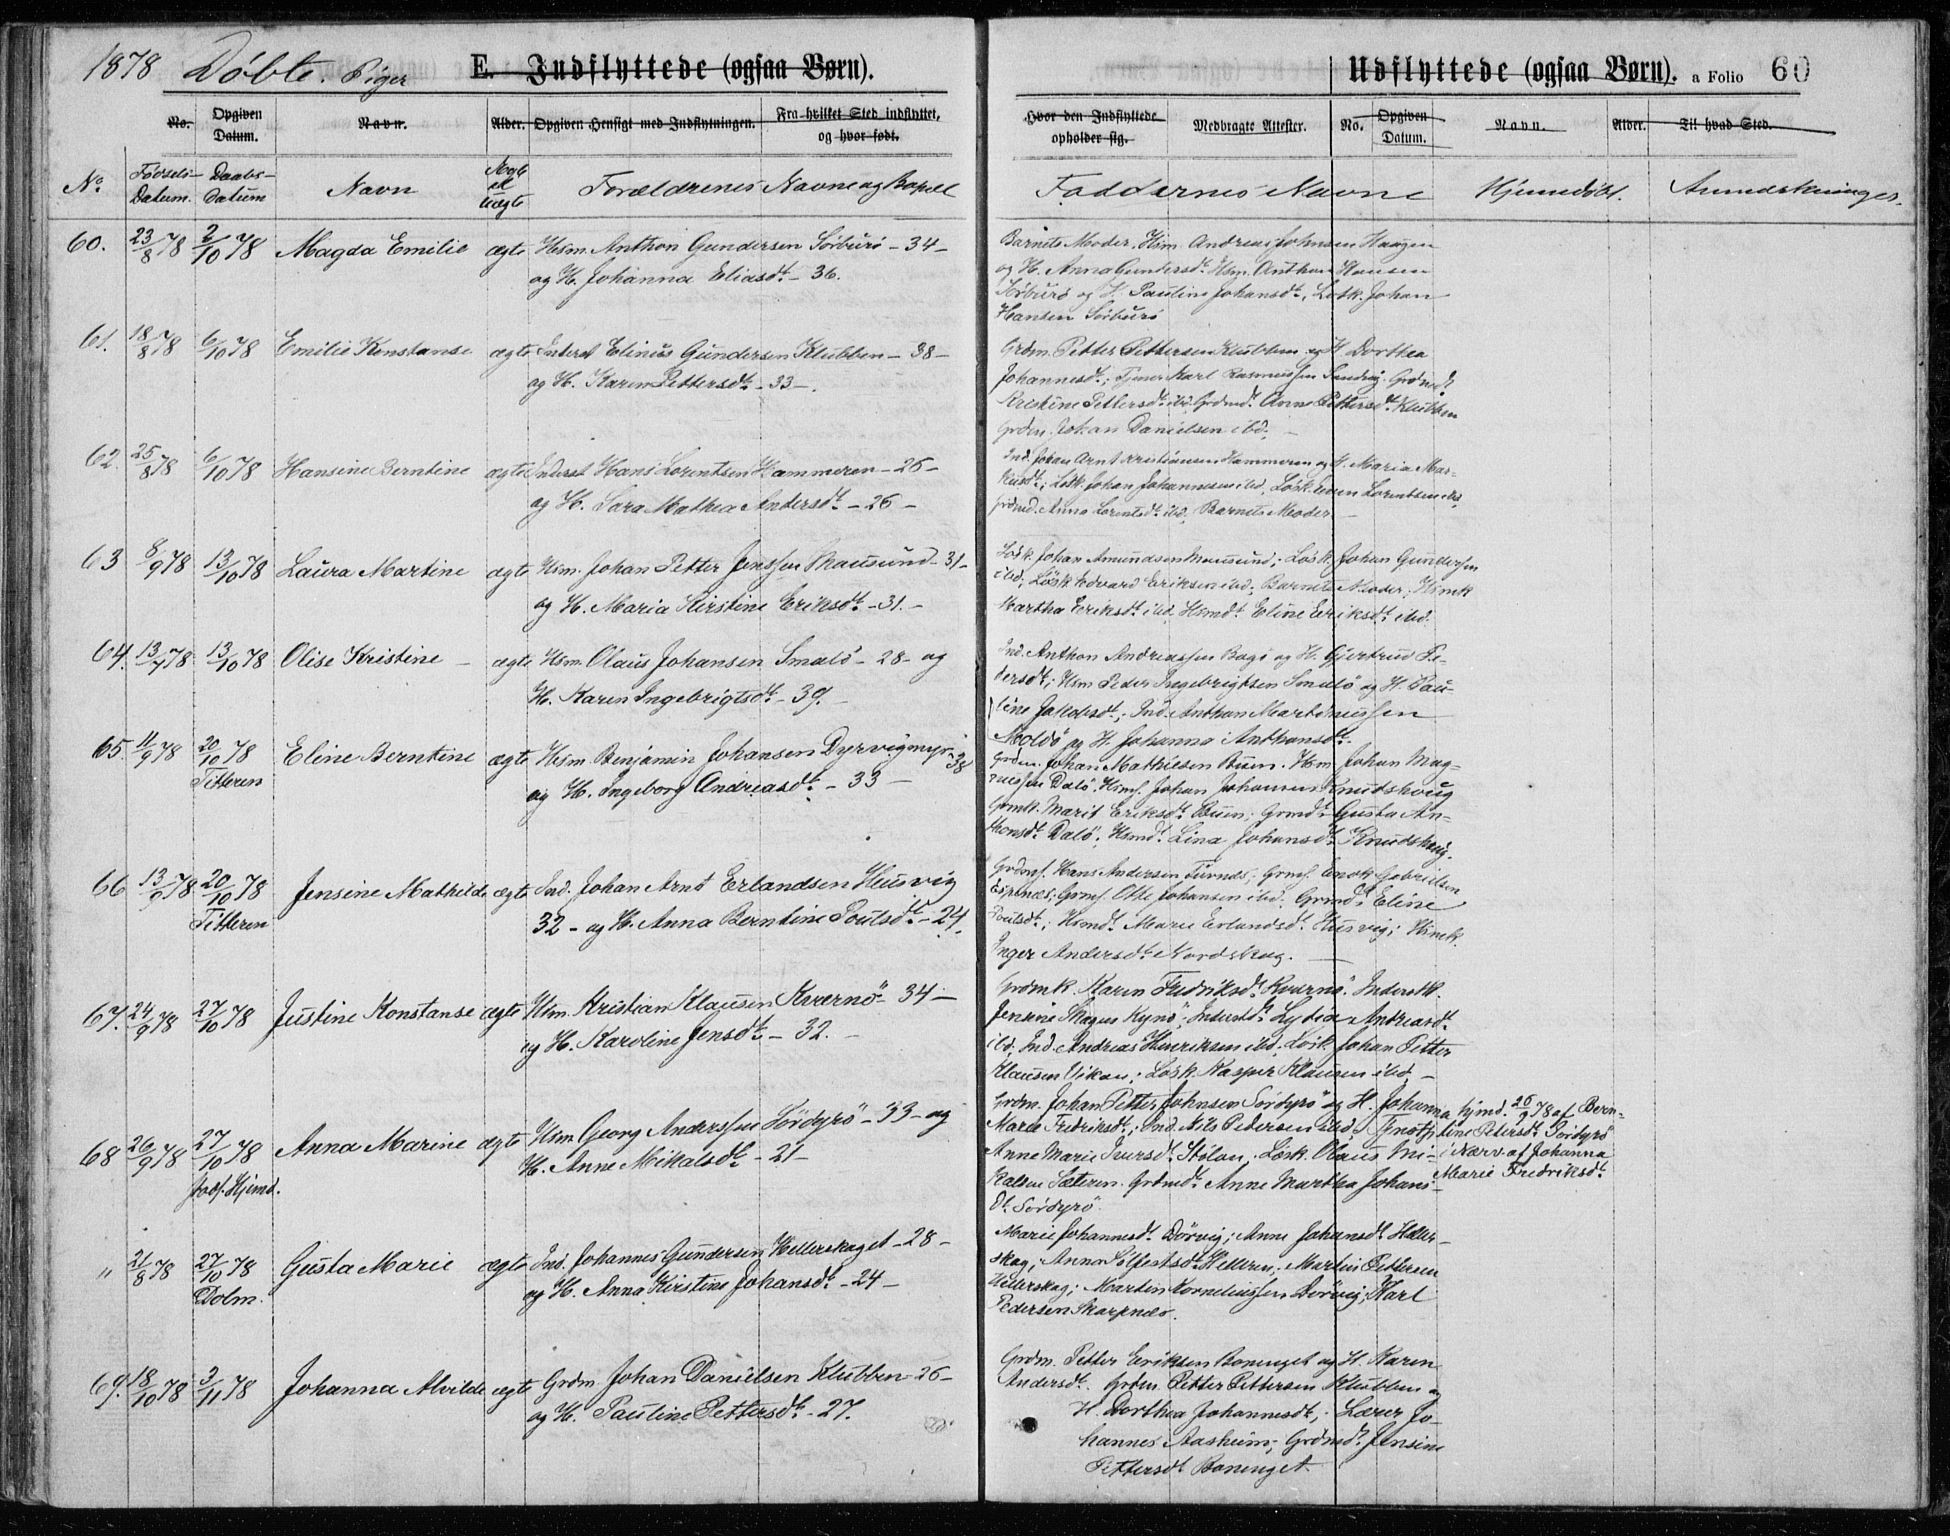 1878 Døbte. Piger E. Indflyttede (ogsaa Børn). Udflyttede (ogsaa Børn). a Folio 60
No. Opgiven Datum. Navn. Alder. Opgiven Hensigt med Indflytningen. Fra hvilket Sted indflyttet, og hvor født. Hvor den Indflyttede opholder sig. Medbragte Attester. No. Opgiven Datum. Navn. Alder. Til hvad Sted.
No. Fødsels-Datum. Daabs-Datum Navn Ægte el uægte Forældrenes Navne og Bopæl Faddernes Navne Hjemmedøbt. Anmærkninger.
60. 23/8 78 2/10 78 Magda Emilie ægte Hsm. Anthon Gundersen Sørburø - 34 -
og H. Johanna Eliasdt. - 36.
Barnets Moder, Hsm. Andreas Johnsen Haugen
og H. Anna Gundersdt. Hsm. Anthon Hansen
Sørburø og H. Pauline Johansdt., Løsk. Johan
Hansen Sørburø
61. 18/8 78 6/10 78 Emilie Konstanse ægte Inderst Elinus Gundersen Klubben - 38 -
og H. Karen Pettersdt. - 33 -.
Grdm. Petter Pettersen Klubben og H. Dorthea
Johannesdt.; Tjener Karl Rasmussen Sandvig. Grdmdt.
Kristine Pettersdt. ibd. Grdmdt. Anne Pettersdt. Klubben
Grdm. Johan Danielsen ibd. -
62. 25/8 78 6/10 78 Hansine Berntine ægte Inderst Hans Lorentsen Hammeren - 26 -
og H. Sara Mathea Andersdt. - 26 -
Ind. Johan Arnt Kristiansen Hammeren og H. Maria Mar-
kusdt.; Løsk. Johan Johannesen ibd, Løsk. Lorentsen ibd,
Anna Lorentsdt. ibd, Barnets Moder. -
63 8/9 78 13/10 78 Laura Martine ægte Hsm. Johan Petter Jenssen Mausund - 31 -
og H. Maria Kirstine Eriksdt. - 31. -
Løsk. Johan Amundsen Mausund; Løsk. Johan Gundersen
ibd, Løsk. Edvard Eriksen ibd; Barnets Moder; Hsmk
Martha Eriksdt. ibd, Hsmdt. Eline Eriksdt. ibd.
64. 13/7 78 13/10 78 Olise Kristine - ægte Hsm. Olaus Johansen Smalø - 28 - og
H. Karen Ingebrigtsdt. - 39. -
Ind. Anthon Andreassen Bogø og H. Gjertrud Pe-
dersdt.; Hsm Peder Ingebrigtsen Smalø og H. Pau-
line Jakobsdt.; Ind. Anthon Martinussen
og H. Johanna Anthonsdt.
65. 11/9 78 20/10 78 Titteren Eline Berntine ægte Hsm. Benjamin Johansen Dyrvigmyr - 38
og H. Ingeborg Andreasdt. - 33 -
Grdm. Johan Mathiesen Buen. Hsm Johan Mag-
nussen Dalø, Hsms. Johan Johansen Knudshaug
Grmk. Marit Eriksdt. Buen; Grmdt. Gusta An-
thonsdt. Dalø; Hsmdt. Lina Johansdt. Knudshaug.
66 13/9 78 20/10 78 Titteren Jensine Mathilde ægte Ind. Johan Arnt Erlandsen Husvig
32 - og H. Anna Berntine Poulsdt. - 24.
Grdms. Hans Andersen; Grms. Enok Gabrielsen
Espnæs; Grms. Otte Johansen ibd. Grmdt. Eline
Poulsdt.; Hsmdt. Marie Erlandsdt. Husvig; Hsmk.
Inger Andersdt. Nordskag. -
67. 24/9 78 27/10 78 Justine Konstanse ægte Hsm. Kristian Klausen Kværnø - 34 -
og H. Karoline Jensdt. - 32. -
Grdmk. Karen Fredriksdt. Kværnø. Inderstk.
Jensine Skagen Kynø; Inderstdt. Lydia Andreasdt.
ibd, Ind. Andreas Henriksen ibd. Løsk. Johan Petter
Klausen Vikan; Løsk. Kasper Klausen ibd -
68 26/9 78 27/10 78 Hjemd. Anna Marine ægte Hsm Georg Anderssen Sørdyrø - 33 - og
H. Anne Mikalsdt. - 21 -
Grdm. Johan Petter Johnsen Sørdyrø og H. Johanna
Marie Fredriksdt.; Ind. Nils Pedersen ibd;
Anne Marie Iversdt. Stølan; Løsk. Olaus Mi-
kalsen Sæteren. Grdmdt. Anne Martha Johans-
dt. Sørdyrø
hjmd. 26/9 78 af Bern-
tine Petersdt. Sørdyrø
i Nærv. af Johanna
Marie Fredriksdt.
" 21/8 78 27/10 78 Dolm. Gusta Marie ægte Ind. Johannes Gundersen Hellerskaget - 28 -
og H. Anna Kirstine Johansdt. - 24 -
Marie Johannesdt. Børvig; Anne Johansdt. Heller-
skag; Anna Sølfestsdt. Helleren; Martin Pettersen
Hellerskag; Martin Korneliussen Børvig; Karl
Pedersen Skarpnæs.
69. 18/10 78 3/11 78 Johanna Alvilde ægte Grdm. Johan Danielsen Klubben - 26 -
og H. Pauline Pettersdt. - 27.
Grdm. Petter Eriksen Bonenget og H. Karen
Andersdt. Grdm. Petter Pettersen Klubben og
H. Dorthea Johannesdt.; Lærer Jo-
hannes Aasheim; Grdmdt. Jensine
Pettersdt. Bonenget.